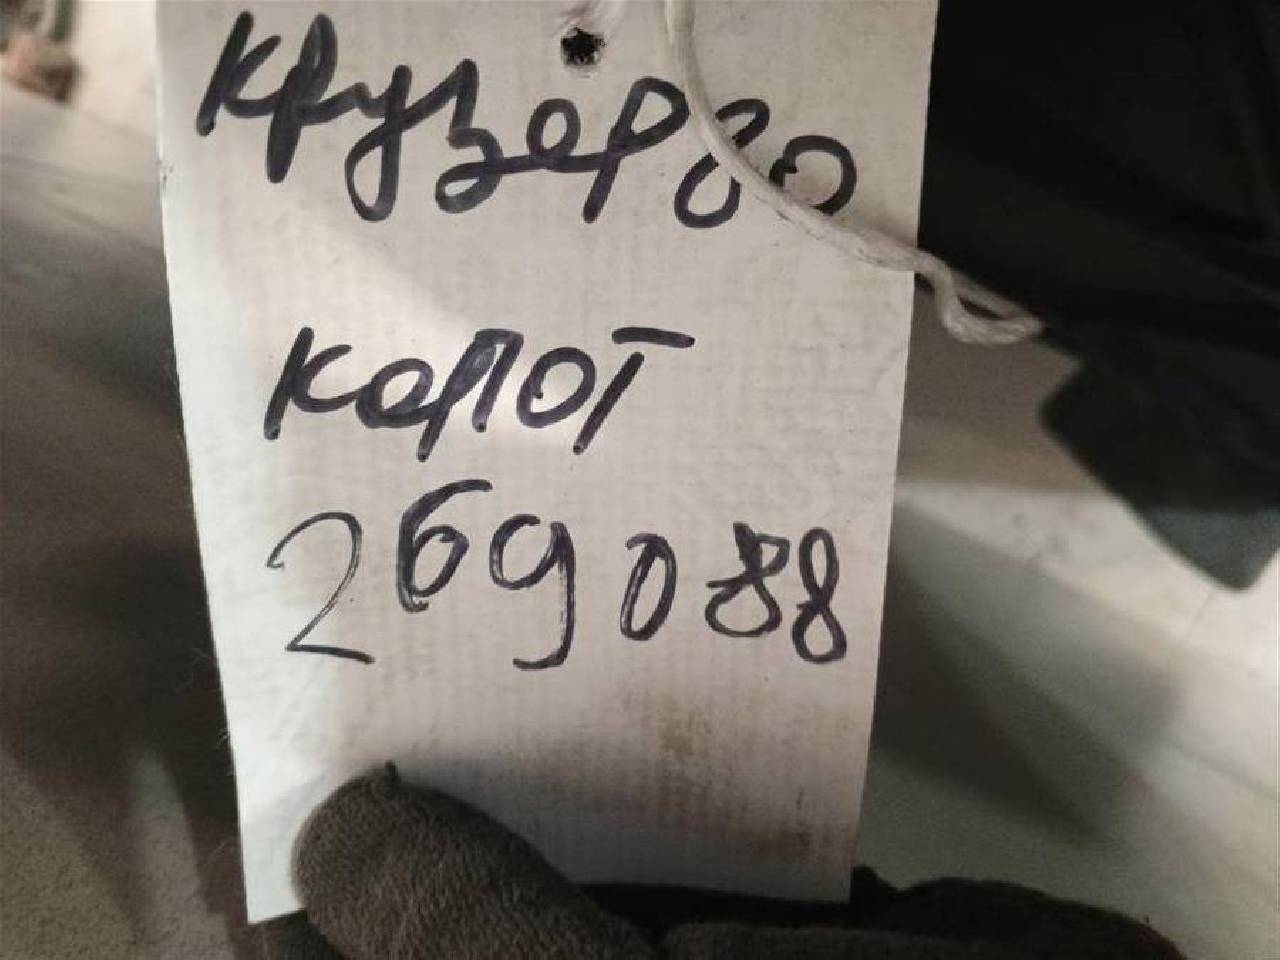 Крузер 80
капот
269088